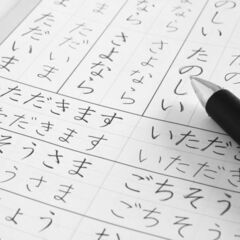 のしい
たのしい
なら
さよなら
さよなら
ただいま
ただいま
ただきます
いただき
だきます
いただき
そうさま
ごちそう
うさま
ごちそう
よう